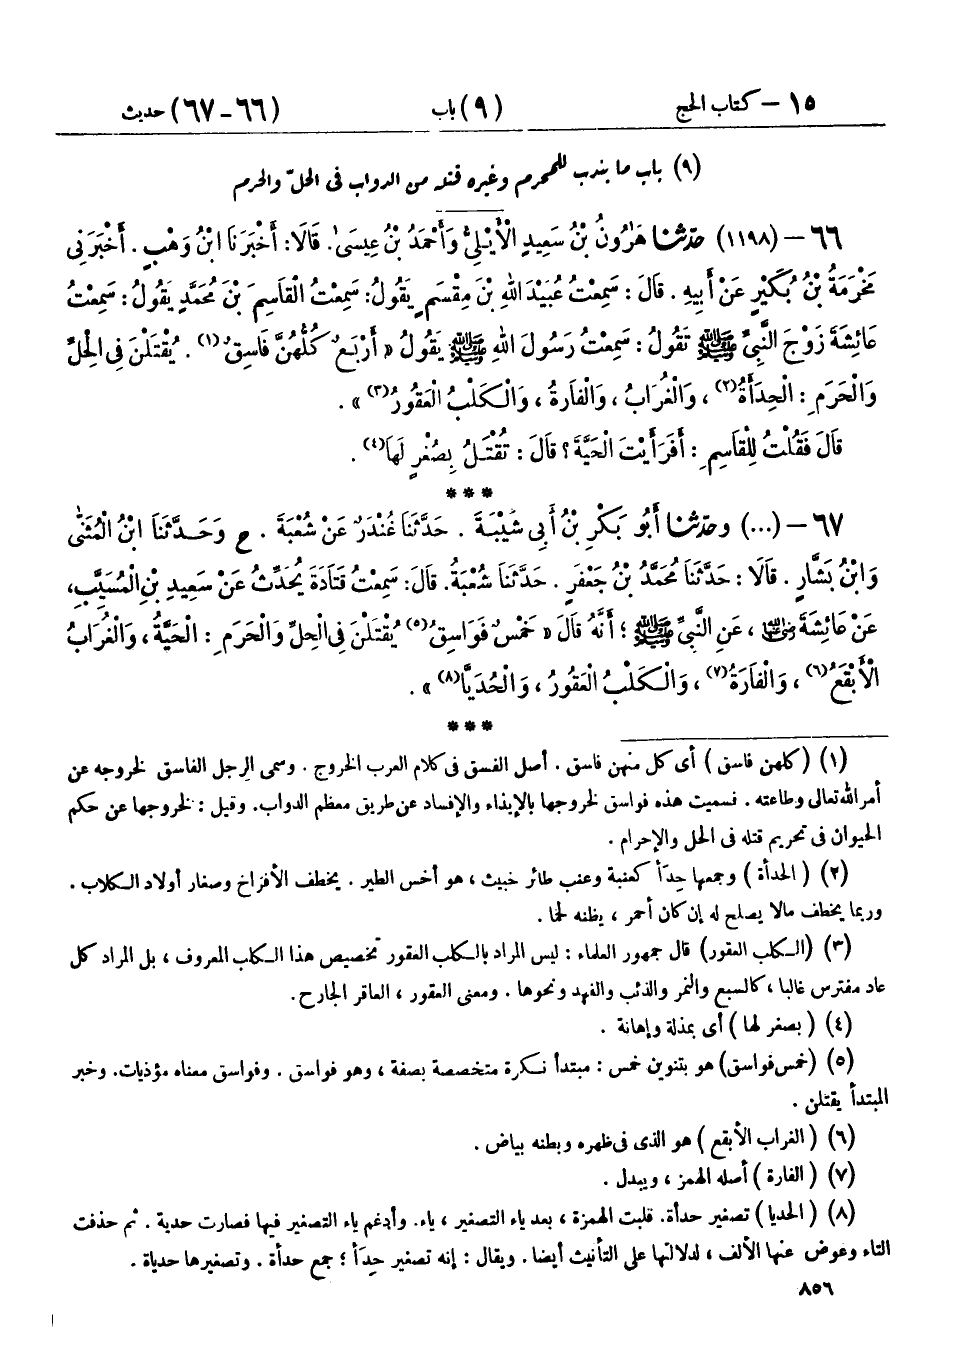 ١٥ – كتاب الحج (٩) باب (٦٦ – ٦٧) حديث
(٩) باب ما يندب للمحرم وغيره قتله من الدواب فى الحلّ والحرم
٦٦ – (١١٩٨) حدّثنا هَرُونُ بْنُ سَعِيدٍ الْأَيْلِىُّ وَأَحْمَدُ بْنُ عِيسَىٰ. قَالَا: أَخْبَرَنَا ابْنُ وَهْبٍ. أَخْبَرَنِى
مَخْرَمَةُ بْنُ بُكَيْرٍ عَنْ أَبِيهِ. قَالَ: سَمِعْتُ عُبَيْدَ اللهِ بْنَ مِقْسَمٍ يَقُولُ: سَمِعْتُ الْقَاسِمَ بْنَ مُحَمَّدٍ يَقُولُ: سَمِعْتُ
عَائِشَةَ زَوْجَ النَّبِىِّ ﷺ تَقُولُ: سَمِعْتُ رَسُولَ اللهِ ﷺ يَقُولُ « أَرْبَعٌ كُلُّهُنَّ فَاسِقٌ(١). يُقْتَلْنَ فِى الْحِلِّ
وَالْحَرَمِ: الْحِدَأَةُ(٢)، وَالْغُرَابُ، وَالْفَارَةُ، وَالْكَلْبُ الْعَقُورُ(٣) ».
قَالَ فَقُلْتُ لِلْقَاسِمِ: أَفَرَأَيْتَ الْحَيَّةَ؟ قَالَ: تُقْتَلُ بِصُغْرٍ لَهَا(٤).
***
٦٧ – (...) وحدّثنا أَبُو بَكْرِ بْنُ أَبِى شَيْبَةَ. حَدَّثَنَا غُنْدَرٌ عَنْ شُعْبَةَ. ح وَحَدَّثَنَا ابْنُ الْمُثَنَّىٰ
وَابْنُ بَشَّارٍ. قَالَا: حَدَّثَنَا مُحَمَّدُ بْنُ جَعْفَرٍ. حَدَّثَنَا شُعْبَةُ. قَالَ: سَمِعْتُ قَتَادَةَ يُحَدِّثُ عَنْ سَعِيدِ بْنِ الْمُسَيَّبِ،
عَنْ عَائِشَةَ رضي الله عنها، عَنِ النَّبِىِّ ﷺ؛ أَنَّهُ قَالَ « خَمْسٌ فَوَاسِقُ(٥) يُقْتَلْنَ فِى الْحِلِّ وَالْحَرَمِ: الْحَيَّةُ، وَالْغُرَابُ
الْأَبْقَعُ(٦)، وَالْفَارَةُ(٧)، وَالْكَلْبُ الْعَقُورُ، وَالْحُدَيَّا(٨) ».
***
(١) (كلهن فاسق) أى كل منهن فاسق. أصل الفسق فى كلام العرب الخروج. وسمى الرجل الفاسق لخروجه عن
أمر الله تعالى وطاعته. فسميت هذه فواسق لخروجها بالإيذاء والإفساد عن طريق معظم الدواب. وقيل: لخروجها عن حكم
الحيوان فى تحريم قتله فى الحل والإحرام.
(٢) (الحدأة) وجمعها حِدَأ كعنبة وعنب طائر خبيث، هو أخس الطير. يخطف الأفراخ وصغار أولاد الكلاب.
وربما يخطف مالا يصلح له إن كان أحمر، يظنه لحما.
(٣) (الكلب العقور) قال جمهور العلماء: ليس المراد بالكلب العقور تخصيص هذا الكلب المعروف، بل المراد كل
عاد مفترس غالبا، كالسبع والنمر والذئب والفهد ونحوها. ومعنى العقور، العاقر الجارح.
(٤) (بصغر لها) أى بمذلة وإهانة.
(٥) (خمس فواسق) هو بتنوين خمس: مبتدأ نكرة متخصصة بصفة، وهو فواسق. وفواسق معناه مؤذيات. وخبر
المبتدأ يقتلن.
(٦) (الغراب الأبقع) هو الذى فى ظهره وبطنه بياض.
(٧) (الفارة) أصله الهمز، ويبدل.
(٨) (الحديا) تصغير حدأة. قلبت الهمزة، بعد ياء التصغير، ياء. وأدغم ياء التصغير فيها فصارت حدية. ثم حذفت
التاء وعوض عنها الألف، لدلالتها على التأنيث أيضا. ويقال: إنه تصغير حِدَأ؛ جمع حدأة. وتصغيرها حدياة.
٨٥٦